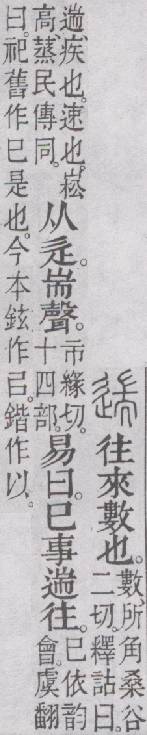 往來數也。數、所角桑谷
二切。釋詁曰。
遄、疾也。速也。崧
高、蒸民傳同。从辵。耑聲。市緣切。
十四部。易曰。巳事遄往。巳依韵
會。虞翻
曰。祀舊作巳是也。今本鉉作㠯。鍇作以。